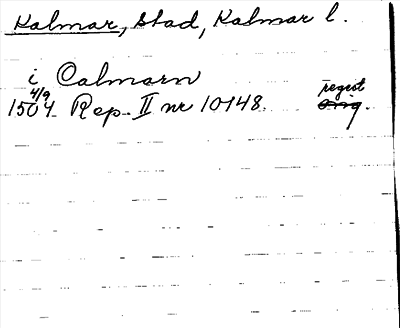 Kalmar, stad, Kalmar l.
i Calmarn
4/9 regist
1504 Rep. II nr 10148. orig.